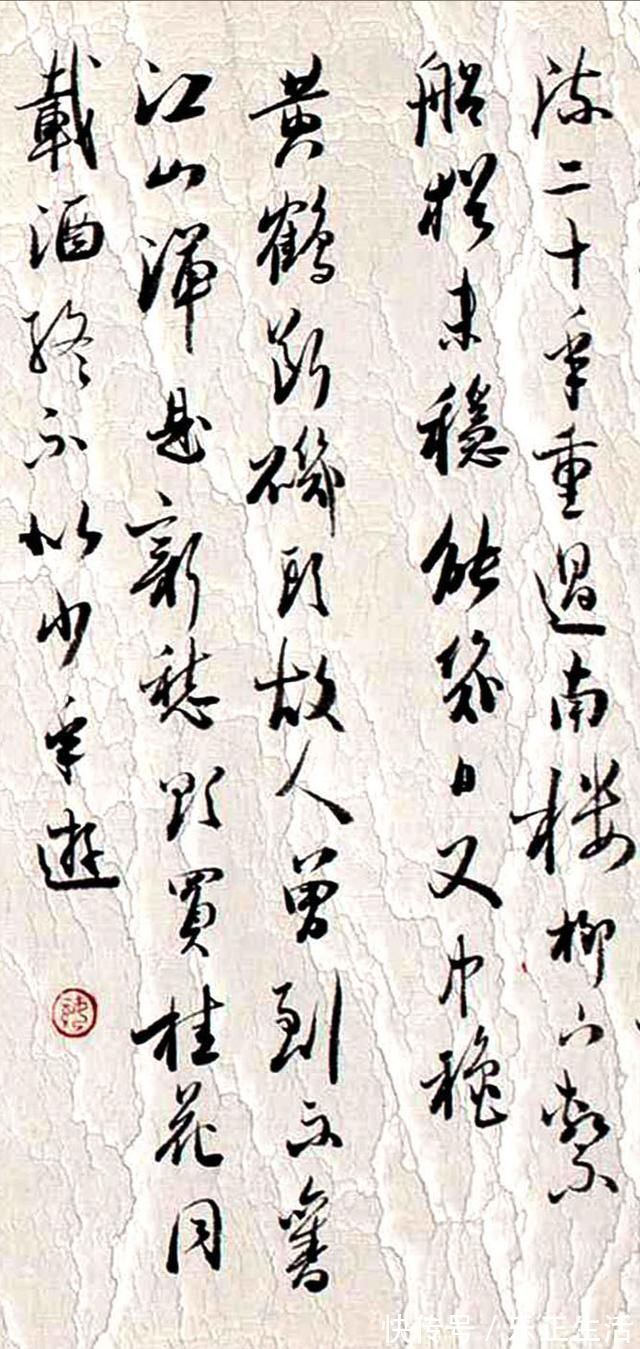 流二十年重過南樓柳下繫
船猶未穩能幾日又中穐
黃鶴斷磯頭故人曾到不舊
江山渾是新愁欲買桂花同
載酒終不似少年遊
快传号 / 生活